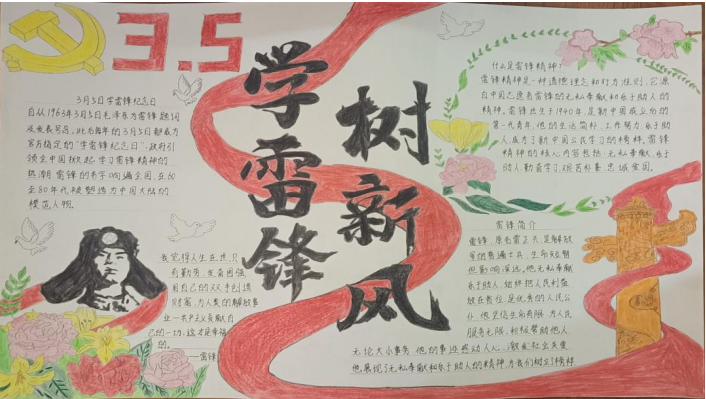 3.5
学雷锋
树新风
3月5日学雷锋纪念日
自从1963年3月5日毛泽东为雷锋题词
及发表号召,此后每年的3月5日都成为
官方稳定的"学雷锋纪念日"政府引
领全中国掀起学习雷锋精神的
热潮 雷锋的名字响遍全国,在60
至80年代被塑造为中国大陆的
模范人物。
我觉得人生在世,只
有勤劳,发奋图强
用自己的双手创造
财富,为人类的解放事
业—共产主义贡献自
己的一切,这才是幸福
的。
——雷锋
什么是雷锋精神?
雷锋精神是一种道德理念和行为准则,它源
自中国志愿者雷锋的无私奉献和乐于助人的
精神。雷锋出生于1940年,是新中国成立后的
第一代青年,他的生活简朴,工作努力,乐于助
人,成为了新中国公民学习的榜样,雷锋
精神的核心内容包括:无私奉献,乐
于助人,勤奋学习,艰苦朴素,忠诚爱国。
雷锋简介
雷锋,原名雷正兴,是解放
军的普通士兵,生命短暂
但影响深远,他无私奉献
乐于助人,始终把人民利益
放在首位,是优秀的人民公
仆,他坚信生命有限,为人民
服务无限,积极帮助他人
无论大小事务,他的事迹感动人心,激发社会美德
他展现了无私奉献和乐于助人的精神,为我们树立了榜样